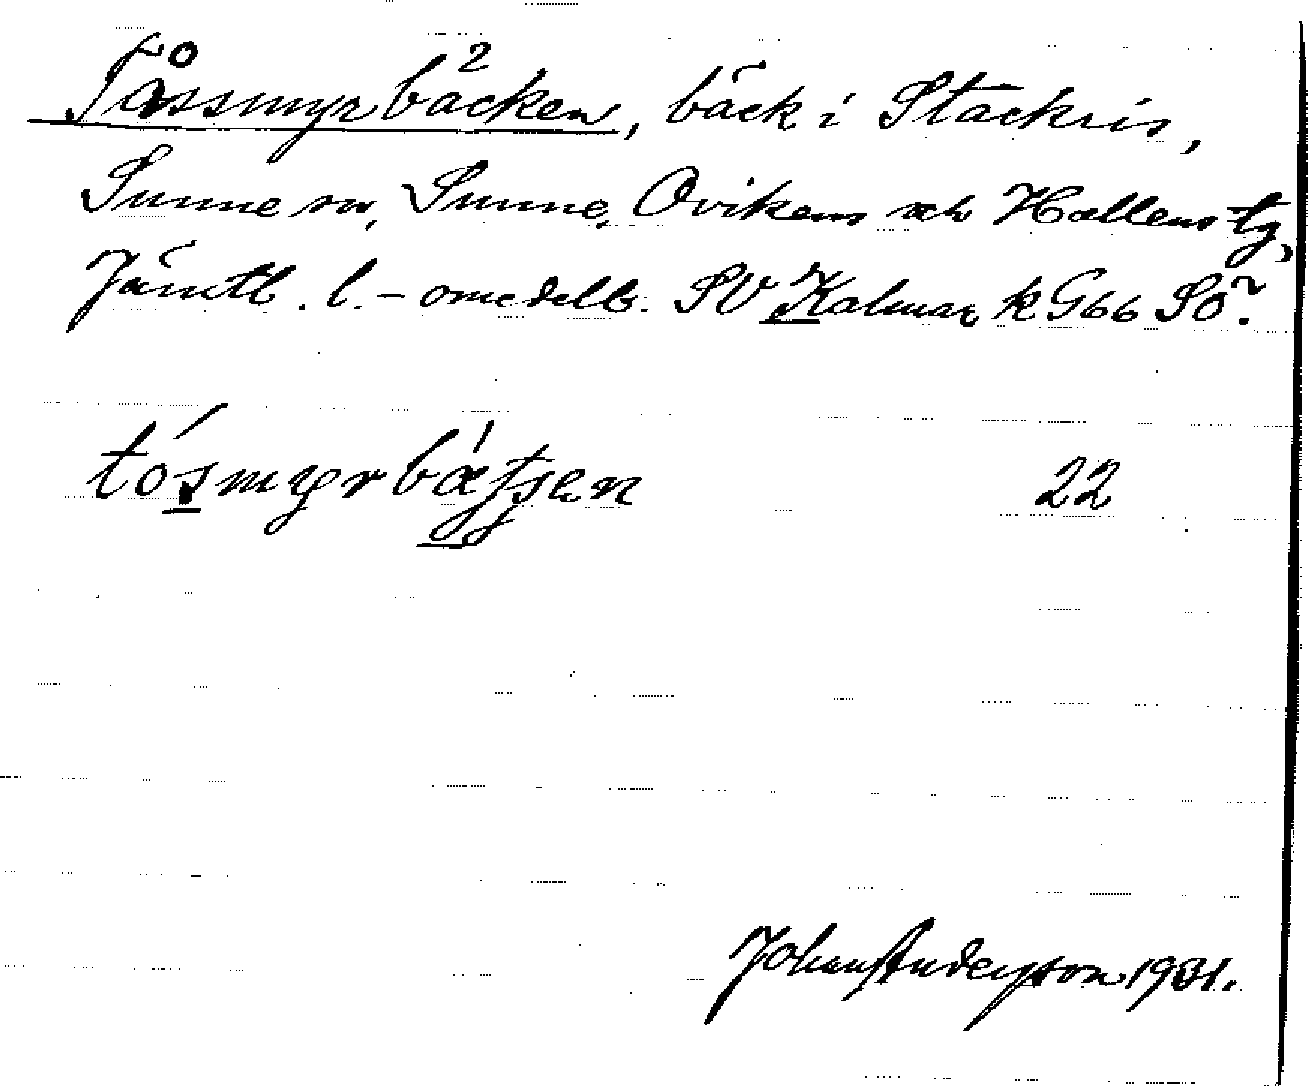 Tåssmyrbäcken, bäck i Stackris,
Sunne sn, Sunne, Ovikens och Hallens tg,
Jämtl. l. – omedelb. SV Kalmar k G66 SO?
tósmyrbætsen 22
Johan Anderson 1931.